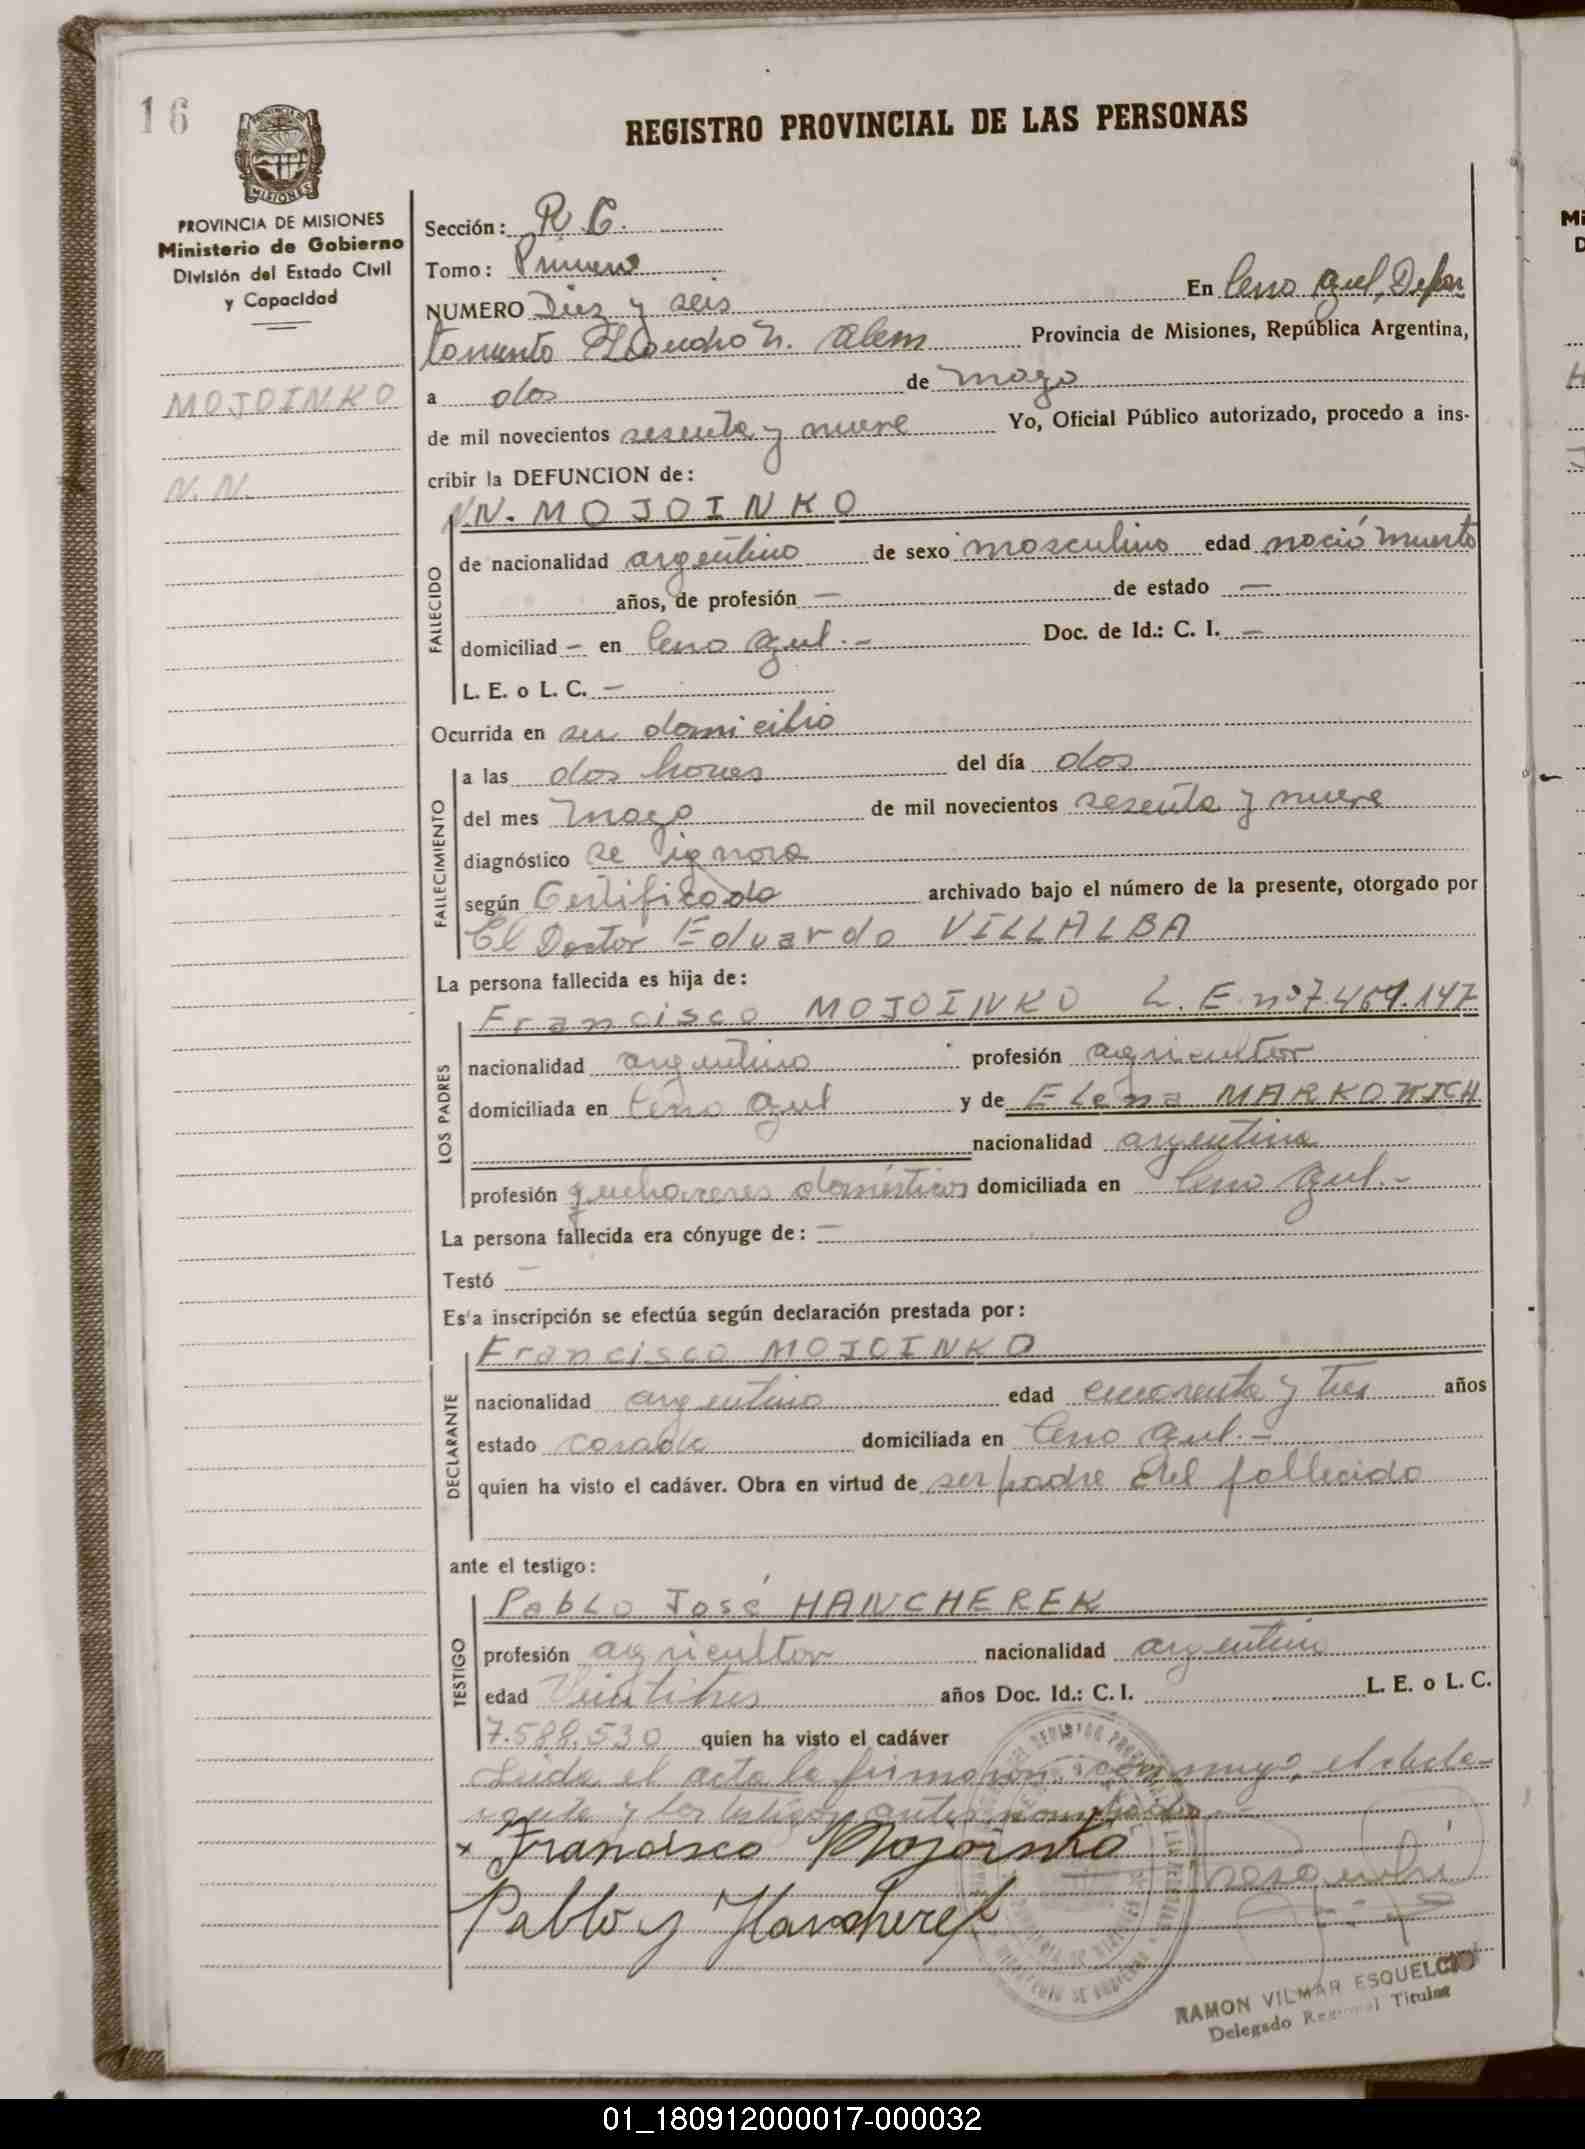 16
REGISTRO PROVINCIAL DE LAS PERSONAS
PROVINCIA DE MISIONES
Ministerio de Gobierno
División del Estado Civil
y Capacidad
MOJOINKO
N. N.
Sección: R. C.
Tomo: Primero
NUMERO Diez y seis En Cerro Azul, Depar
tamento Leandro N. Alem Provincia de Misiones, República Argentina,
a dos de mayo
de mil novecientos sesenta y nueve Yo, Oficial Público autorizado, procedo a ins-
cribir la DEFUNCION de:
N.N. MOJOINKO
FALLECIDO
de nacionalidad argentino de sexo masculino edad nació muerto
años, de profesión — de estado —
domiciliad — en Cerro Azul.- Doc. de Id.: C. I. —
L. E. o L. C. —
Ocurrida en su domicilio
FALLECIMIENTO
a las dos horas del día dos
del mes mayo de mil novecientos sesenta y nueve
diagnóstico se ignora
según Certificado archivado bajo el número de la presente, otorgado por
El Doctor Eduardo VILLALBA
La persona fallecida es hija de:
LOS PADRES
Francisco MOJOINKO L. E. nº 7.469.147
nacionalidad argentino profesión agricultor
domiciliada en Cerro Azul y de Elena MARKOWICH
nacionalidad argentina
profesión quehaceres domésticos domiciliada en Cerro Azul.-
La persona fallecida era cónyuge de: —
Testó —
Es'a inscripción se efectúa según declaración prestada por:
DECLARANTE
Francisco MOJOINKO
nacionalidad argentino edad cuarenta y tres años
estado casado domiciliada en Cerro Azul.-
quien ha visto el cadáver. Obra en virtud de ser padre del fallecido
ante el testigo:
TESTIGO
Pablo José HANCHEREK
profesión agricultor nacionalidad argentino
edad Veintitres años Doc. Id.: C. I. L. E. o L. C.
7.588.530 quien ha visto el cadáver
Leida el acta la firmaron conmigo, el decla-
rante y los testigos antes nombrados.-
x Francisco Mojoinko
Pablo J Hancherek
RAMON VILMAR ESQUELCIO
Delegado Regional Titular
01_180912000017-000032